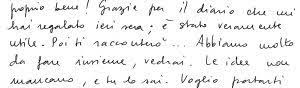 proprio bene! Grazie per il diario che mi
hai regalato ieri sera; è stato veramente
utile. Poi ti racconterò... Abbiamo molto
da fare insieme, vedrai. Le idee non
mancano, e tu lo sai. Voglio portarti